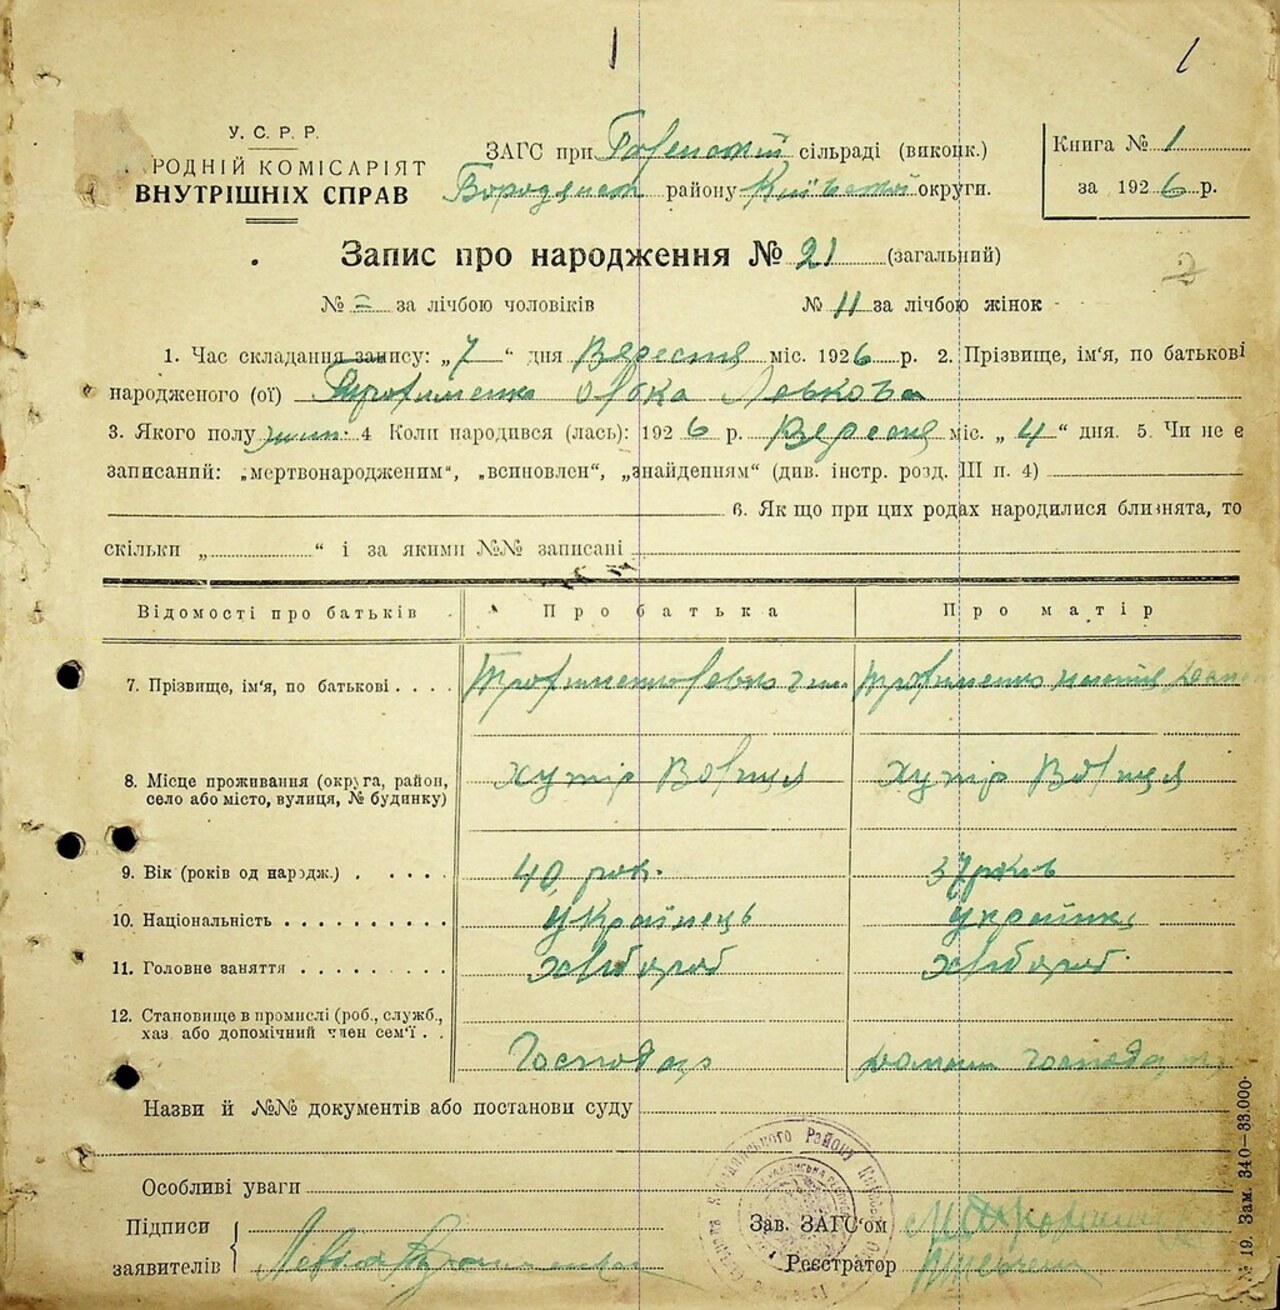 1
1
У. С. Р. Р.
РОДНІЙ КОМІСАРІЯТ
ВНУТРІШНІХ СПРАВ
ЗАГС при сільраді (виконк.)
Бородянськ району Київської округи.
Книга № 1
за 1926 р.
Запис про народження № 21 (загальний)
2
№ за лічбою чоловіків № 11 за лічбою жінок
1. Час складання запису: „7“ дня Вересня міс. 1926 р. 2. Прізвище, ім'я, по батькові
народженого (ої) Трофименко Ольга Левкова
3. Якого полу жін. 4 Коли народився (лась): 1926 р. Вересня міс. „4“ дня. 5. Чи не є
записаний: „мертвонародженим“, „всиновлен“, „знайденням“ (див. інстр. розд. III п. 4)
6. Як що при цих родах народилися близнята, то
скільки „ “ і за якими №№ записані
Відомості про батьків Про батька Про матір
7. Прізвище, ім'я, по батькові . . . . Трофименко Левко Трофименко
8. Місце проживання (округа, район, хутір хутір
село або місто, вулиця, № будинку)
9. Вік (років од нарοдж.) . . . . . 40 рок. 37 років
10. Національність . . . . . . . . . . Українець українка
11. Головне заняття . . . . . . . . . хлібороб хлібороб
12. Становище в промислі (роб., служб.,
хаз або допомічний член сем'ї . . Господар
Назви й №№ документів або постанови суду
Особливі уваги
Підписи
заявителів Левко Трофименко
Зав. ЗАГС'ом
Реєстратор
№ 19. Зам. 340—33.000